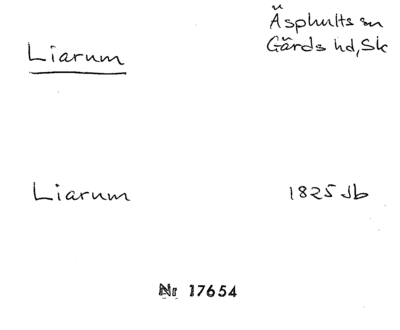 Liarum
Äsphults sn
Gärds hd, Sk
Liarum
1825 Jb
Nr 17654